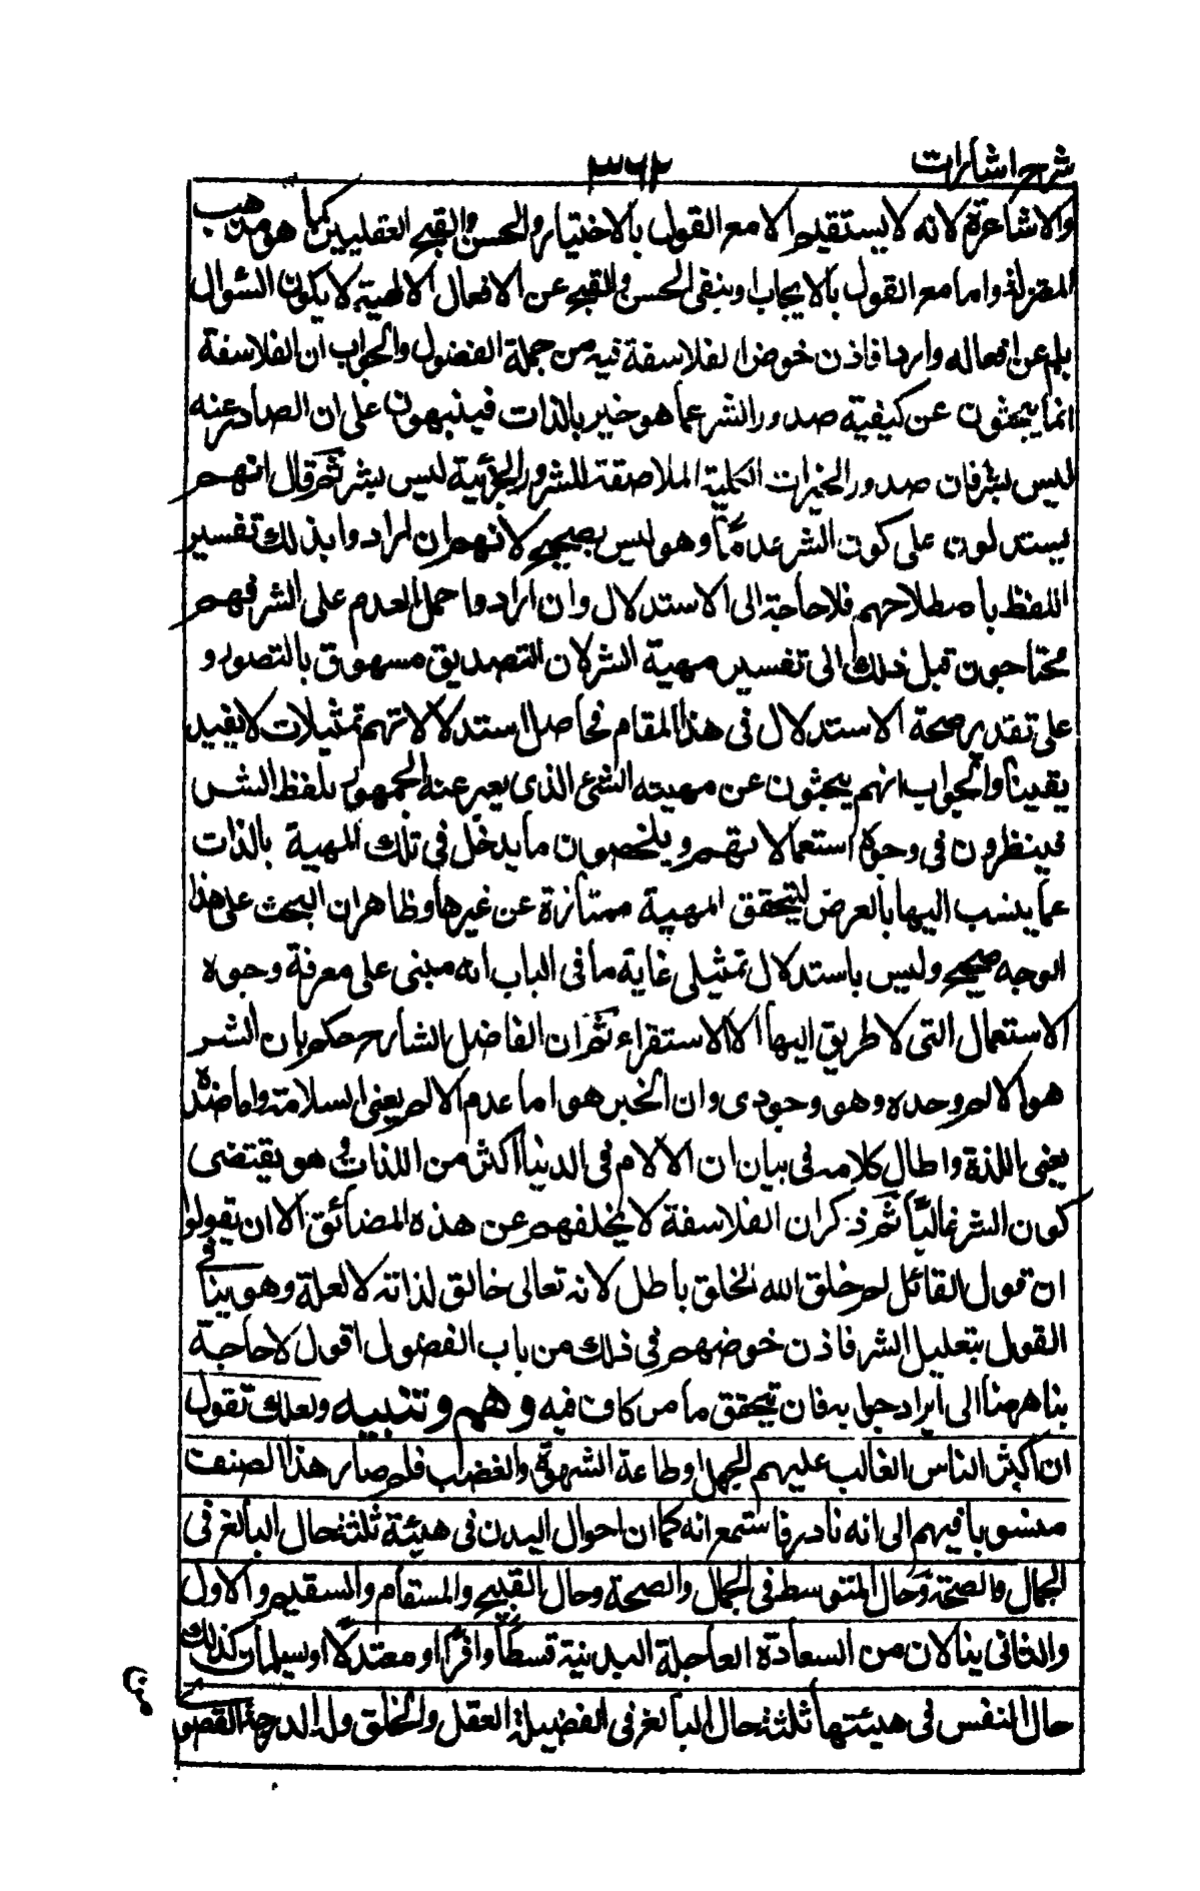 شرح اشارات ٣٦٢
والاشاعرة لانه لا يستقيم الا مع القول بالاختيار والحسن والقبح العقليين كما هو مذهب
المعتزلة واما مع القول بالايجاب او بنفى الحسن والقبح عن الافعال الالهية لا يكون السؤال
بلم عن افعاله واردا فاذن خوض الفلاسفة فيه من جملة الفضول والجواب ان الفلاسفة
انما يبحثون عن كيفية صدور الشر عما هو خير بالذات فينبهون على ان الصادر عنه
ليس بشر فان صدور الخيرات الكلية الملاصقة للشرور الجزئية ليس بشر ثم قال انهم
يستدلون على كون الشر عدميا وهو ليس بصحيح لانهم ان ارادوا بذلك تفسير
اللفظ باصطلاحهم فلا حاجة الى الاستدلال وان ارادوا حمل العدم على الشر فهم
محتاجون قبل ذلك الى تفسير مهية الشر لان التصديق مسبوق بالتصور و
على تقدير صحة الاستدلال فى هذا المقام فحاصل استدلالاتهم تمثيلات لا يفيد
يقينا والجواب انهم يبحثون عن مهيته الشئ الذى يعبر عنه الجمهور بلفظ الشر
فينظرون فى وجوه استعمالاتهم ويلخصون ما يدخل فى تلك المهية بالذات
عما ينسب اليها بالعرض ليتحقق المهية ممتازة عن غيرها وظاهر ان البحث على هذا
الوجه صحيح وليس باستدلال تمثيلى غاية ما فى الباب انه مبنى على معرفة وجوه
الاستعمال التى لا طريق اليها الا الاستقراء ثم ان الفاضل الشارح حكم بان الشر
هو الالم وحده وهو وجودى وان الخير هو اما عدم الالم يعنى السلامة واما ضده
يعنى اللذة واطال كلامه فى بيان ان الالام فى الدنيا اكثر من اللذات و هو يقتضى
كون الشر غالبا ثم ذكر ان الفلاسفة لا يخلفهم عن هذه المضائق الا ان يقولوا
ان قول القائل لم خلق الله الخلق باطل لانه تعالى خالق لذاته لا لعلة وهو ينافى
القول بتعليل الشر فاذن خوضهم فى ذلك من باب الفضول اقول لا حاجة
بنا ههنا الى ايراد جوابه فان تحقق ما مر كاف فيه وهم وتنبيه ولعلك تقول
ان اكثر الناس الغالب عليهم الجهل او طاعة الشهوة والغضب فلم صار هذا الصنف
منسوبا فيهم الى انه نادر فاستمع انه كما ان احوال البدن فى هيئة ثلثة حال البالغ فى
الجمال والصحة وحال المتوسط فى الجمال والصحة وحال القبيح والمسقام والسقيم والاول
والثانى ينالان من السعادة العاجلة البدنية قسطا وافرا او معتدلا او يسلمان كذلك
حال النفس فى هيئتها ثلثة حال البالغ فى الفضيلة العقل والخلق وله الدرجة القصوى